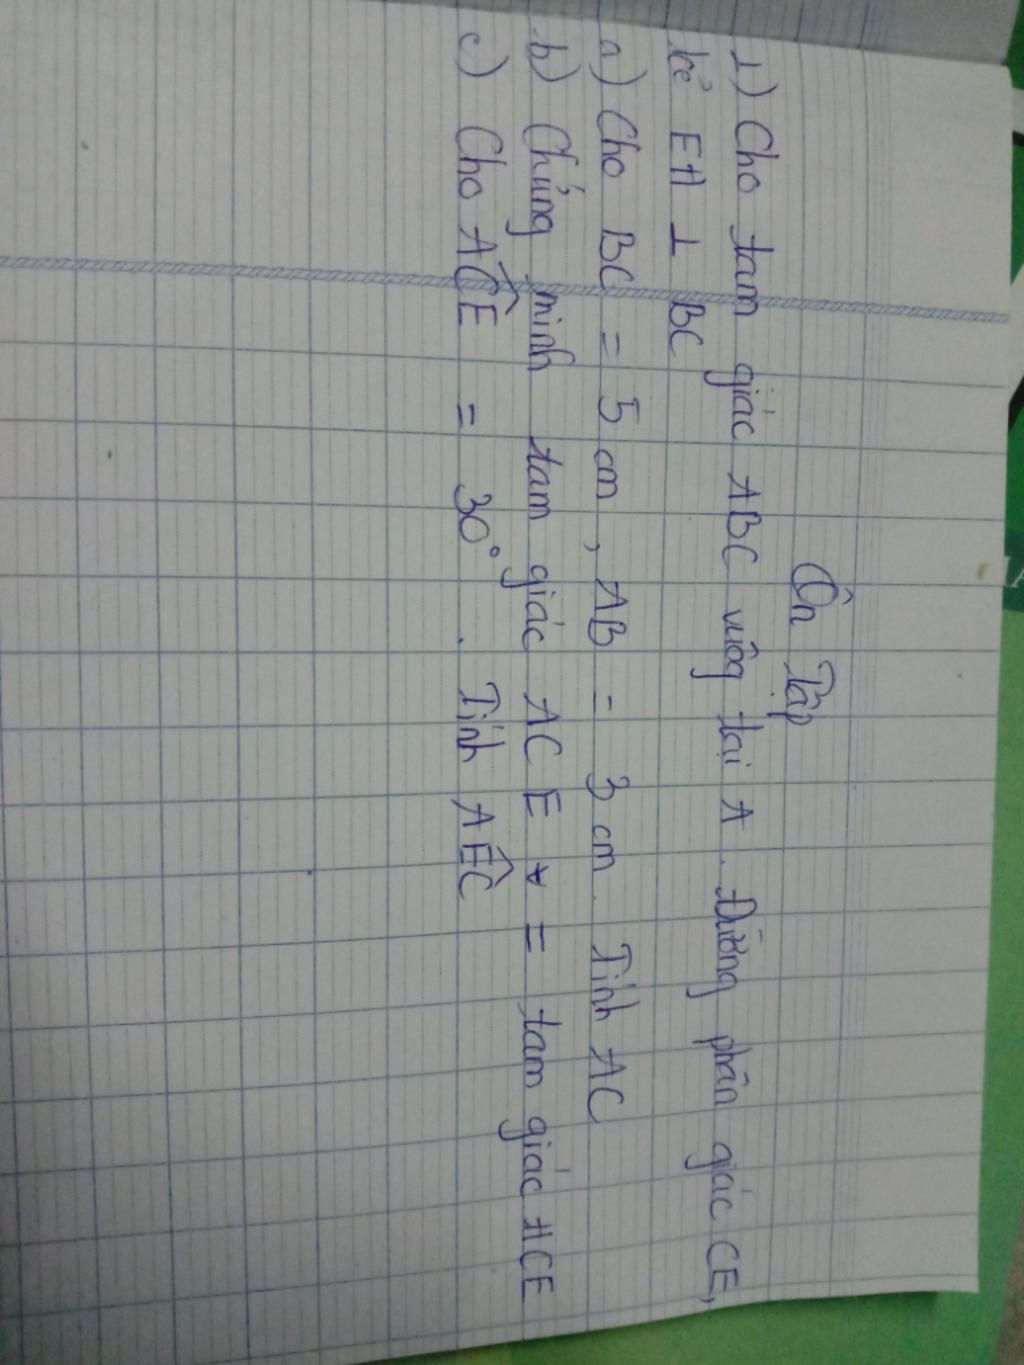 Ôn Tập
1) Cho tam giác ABC vuôg tại A. Đường phân giác CE,
kẻ EH ⊥ BC
a) Cho BC = 5 cm, AB = 3 cm. Tính AC
b) Chứng minh tam giác ACE = tam giác HCE
c) Cho \widehat{ACE} = 30°. Tính \widehat{AEC}